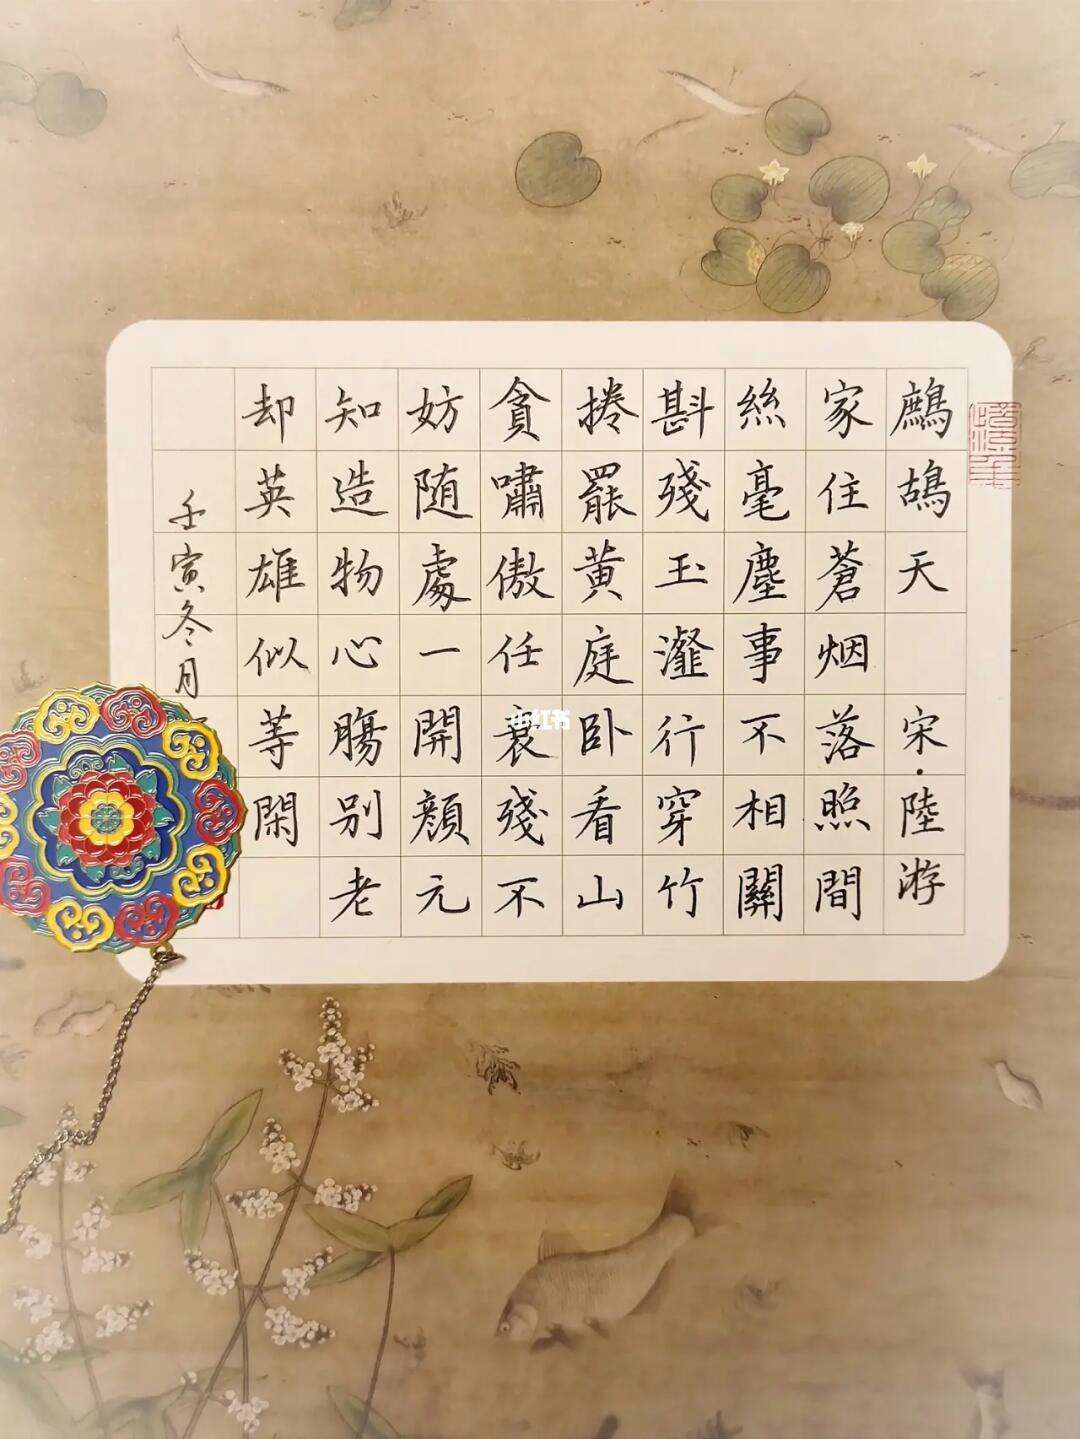 鷓鴣天 宋·陸游
家住蒼烟落照間
絲毫塵事不相關
斟殘玉瀣行穿竹
捲罷黄庭卧看山
貪嘯傲任衰殘不
妨随處一開顔元
知造物心腸別老
却英雄似等閑
壬寅冬月
小红书